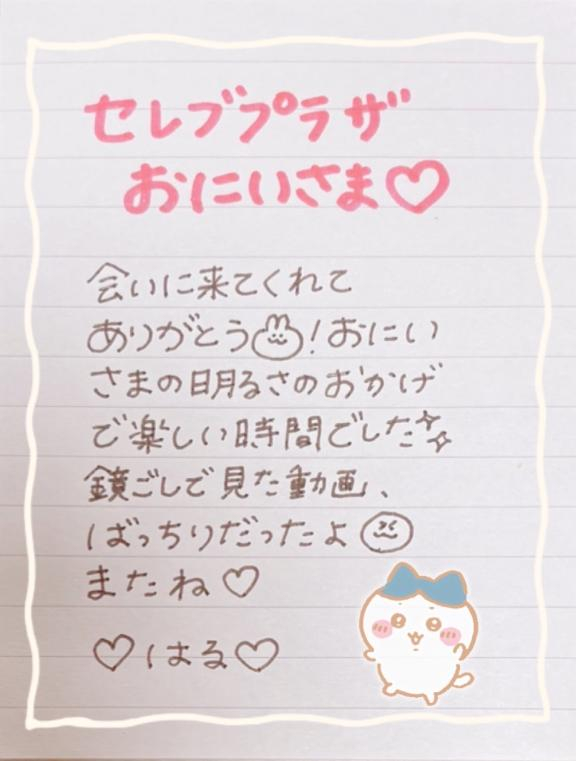 セレブプラザ
おにいさま♡
会いに来てくれて
ありがとう！おにい
さまの明るさのおかげ
で楽しい時間でした✨
鏡ごしで見た動画、
ばっちりだったよ
またね♡
♡はる♡